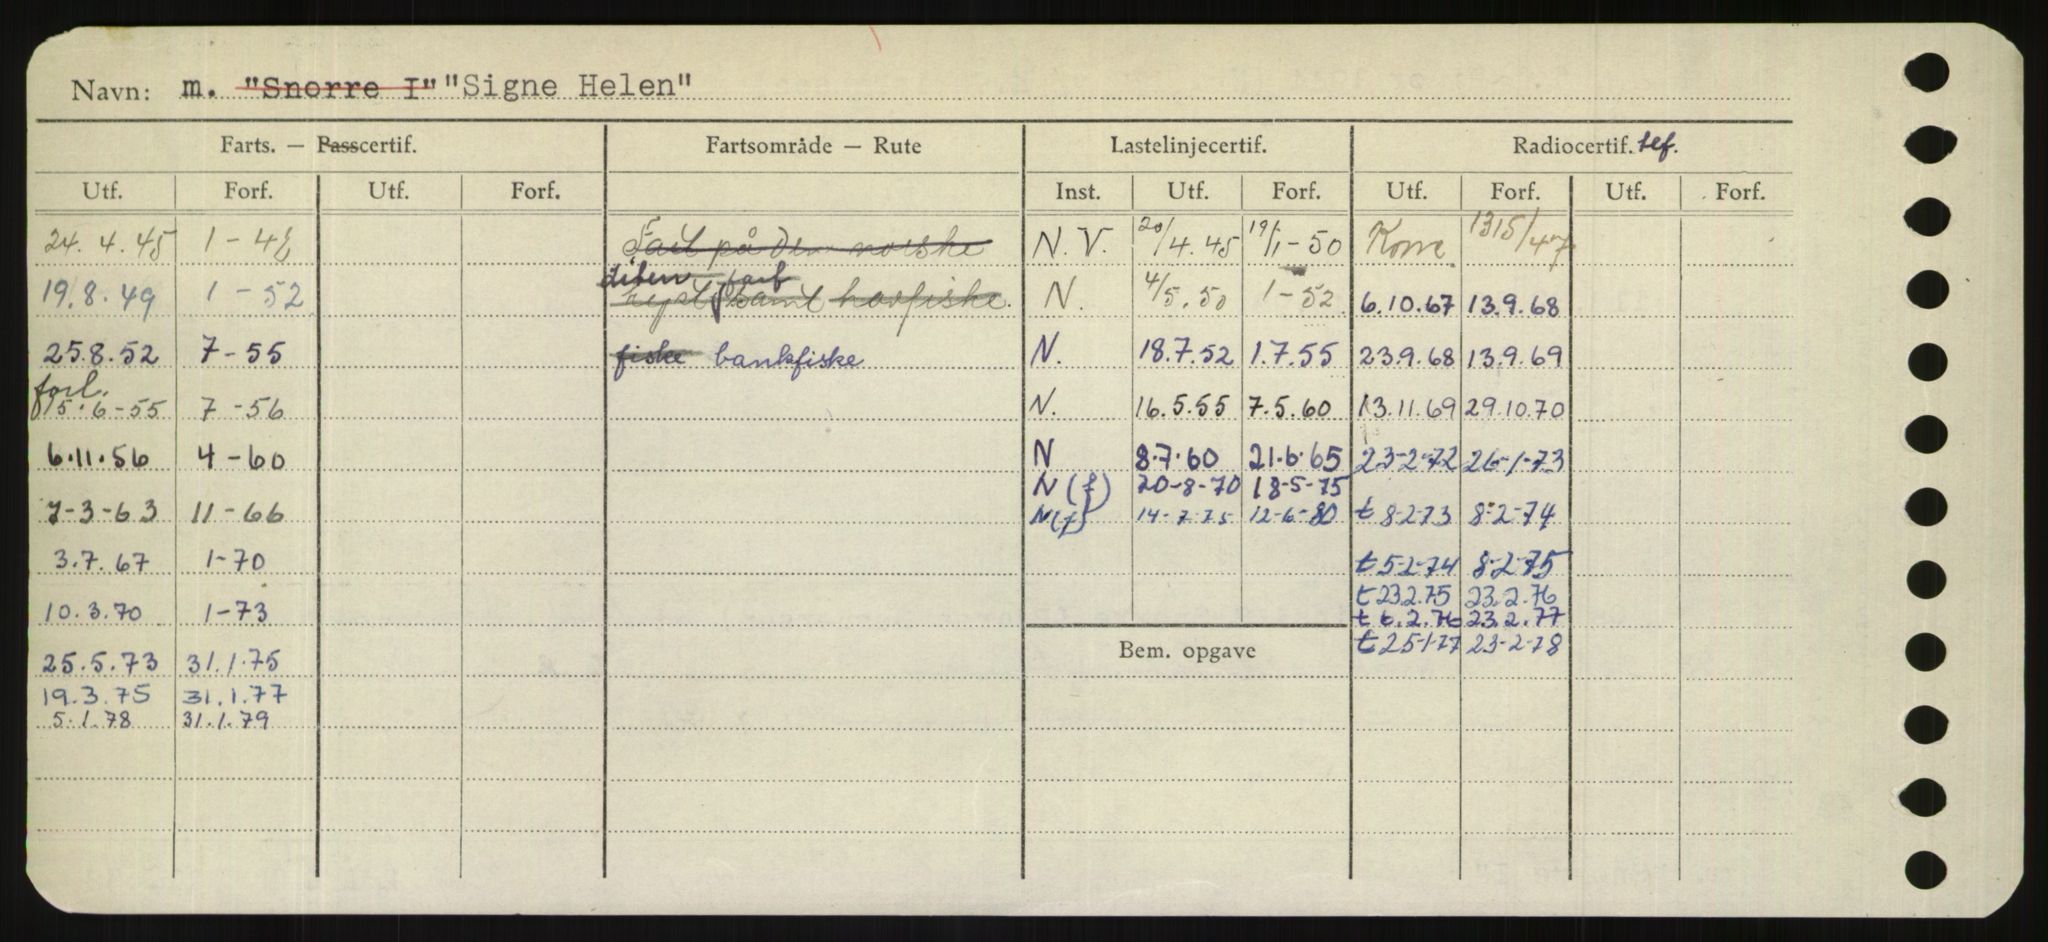 Navn: m. "Snorre I" "Signe Helen"
Farts. — Passcertif. Fartsområde — Rute Lastelinjecertif. Radiocertif. tlf.
Utf. Forf. Utf. Forf. Inst. Utf. Forf. Utf. Forf. Utf. Forf.
24. 4. 45 Fart på den norske N. V. 20/4. 45 19/1-50
19. 8. 49 1-52 samt havfiske. N. 4/5. 50 1-52 6.10.67 13.9.68
25.8.52 7-55 fiske bankfiske N. 18.7.52 1.7.55 23.9.68 13.9.69
forl.
15.6-55 7-56 N. 16.5.55 7.5.60 13.11.69 29.10.70
6.11.56 4-60 N 8.7.60 21.6.65 23-2-72 26-1-73
N (f) 20-8-70 18-5-75
7-3-63 11-66 N(f) 14-7-75 12-6-80 t 8-2-73 8-2-74
3.7.67 1-70 t 5-2-74 8-2-75
t 23.2.75 23.2.76
10.3.70 1-73 t 6.2.76 23.2.77
Bem. opgave t 25-1-77 23-2-78
25.5.73 31.1.75
19.3.75 31.1.77
5.1.78 31.1.79